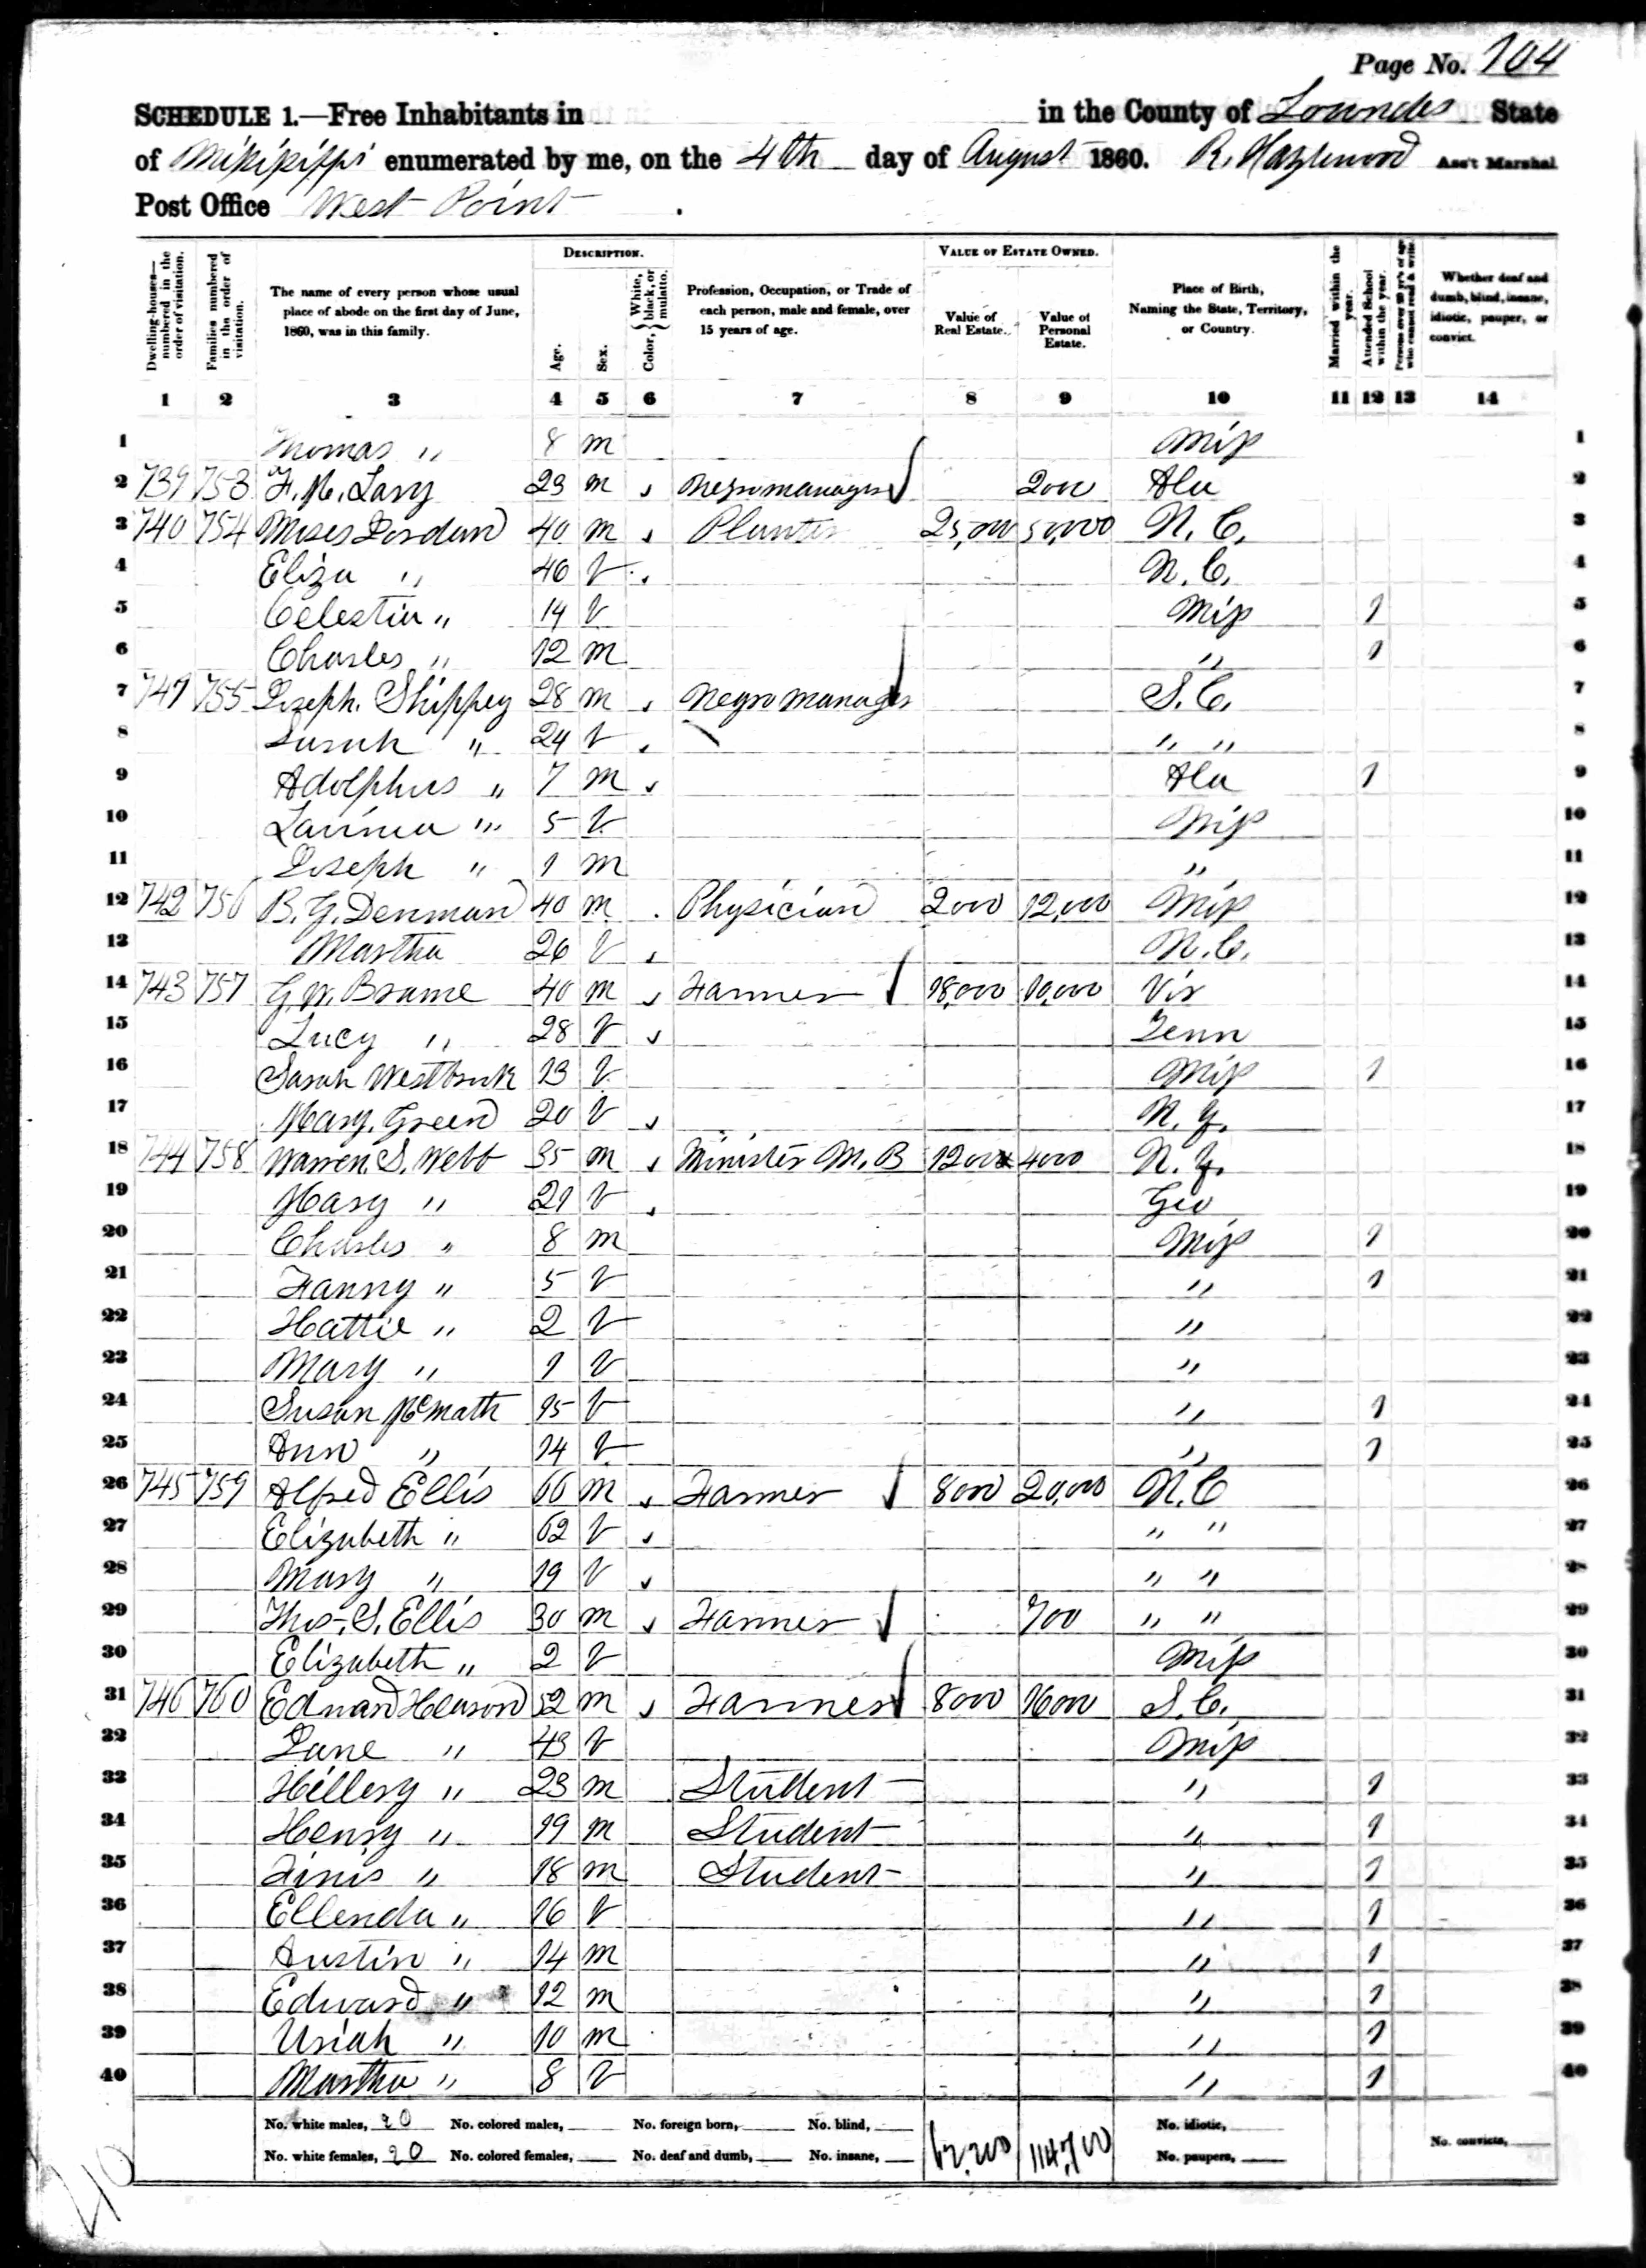 Page No. 104
SCHEDULE 1.—Free Inhabitants in in the County of Lowndes State
of Mississippi enumerated by me, on the 4th day of August 1860. R. Hazlewood Ass't Marshal
Post Office West Point
Dwelling-houses—numbered in the order of visitation.
Families numbered in the order of visitation.
The name of every person whose usual place of abode on the first day of June, 1860, was in this family.
DESCRIPTION.
Age.
Sex.
Color, White, black, or mulatto.
Profession, Occupation, or Trade of each person, male and female, over 15 years of age.
VALUE OF ESTATE OWNED.
Value of Real Estate.
Value of Personal Estate.
Place of Birth, Naming the State, Territory, or Country.
Married within the year.
Attended School within the year.
Persons over 20 yr's of age who cannot read & write.
Whether deaf and dumb, blind, insane, idiotic, pauper, or convict.
1 2 3 4 5 6 7 8 9 10 11 12 13 14
1 Thomas " 8 m Miss 1
2 739 753 23 m Negro manager 2000 Ala 2
3 740 754 Moses Jordan 40 m Planter 25,000 50,000 N. C. 3
4 Eliza " 40 f N. C. 4
5 Celestia " 14 f Miss 1 5
6 Charles " 12 m " 1 6
7 741 755 Joseph Shippey 28 m Negro manager S. C. 7
8 Sarah " 24 f " " 8
9 Adolphus " 7 m Ala 1 9
10 Lavinia " 5 f Miss 10
11 Joseph " 1 m " 11
12 742 756 B. G. Denman 40 m Physician 2000 12,000 Miss 12
13 Martha 26 f N. C. 13
14 743 757 G. W. Brame 40 m Farmer 18,000 10,000 Vir 14
15 Lucy " 28 f Tenn 15
16 Sarah Westbrook 13 f Miss 1 16
17 Mary Green 20 f N. Y. 17
18 744 758 Warren S. Webb 35 m Minister M. B 1200 4000 N. Y. 18
19 Mary " 21 f Geo 19
20 Charles " 8 m Miss 1 20
21 Fanny " 5 f " 1 21
22 Hattie " 2 f " 22
23 Mary " 1 f " 23
24 Susan McMath 15 f " 1 24
25 Ann " 14 f " 1 25
26 745 759 Alfred Ellis 66 m Farmer 8000 20,000 N. C 26
27 Elizabeth " 62 f " " 27
28 Mary " 19 f " " 28
29 Thos. S. Ellis 30 m Farmer 700 " " 29
30 Elizabeth " 2 f Miss 30
31 746 760 Edward 52 m Farmer 8000 16000 S. C. 31
32 Jane " 43 f Miss 32
33 Hillery " 23 m Student " 1 33
34 Henry " 19 m Student " 1 34
35 Finis " 18 m Student " 1 35
36 Ellenda " 16 f " 1 36
37 Austin " 14 m " 1 37
38 Edward " 12 m " 1 38
39 Uriah " 10 m " 1 39
40 Martha " 8 f " 1 40
No. white males, 20 No. colored males, No. foreign born, No. blind, No. idiotic,
No. white females, 20 No. colored females, No. deaf and dumb, No. insane, 62,200 114,700 No. paupers, No. convicts,
210